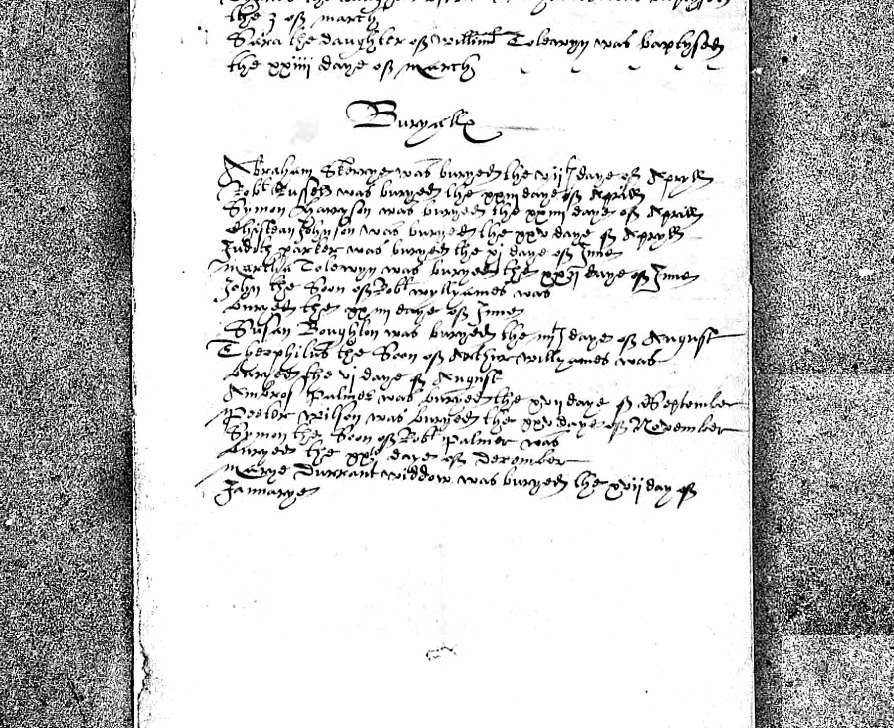 the 3 off march
Sara the daughter off willim Tolewyn was baptysed
the xxiiii daye off march
Buryalls
Abraham Skerrye was buryed the vii daye off Apryll
Robt Russell was buryed the xxiii daye off Aprill
Symon Harryson was buryed the xxiiii daye off Aprill
Johnson was buryed the xxv daye off Apryll
Judith parker was buryed the xi daye off June
martha Tolewyn was buryed the xxii daye off June
John the Soon off Robt wyllyames was
buryed the xxiii daye off June
Susan Boughton was buryed the iii daye off August
Theophilus the Soon off Arthur willyames was
buryed the vi daye off August
Ambros Palmer was buryed the xvii daye off September
Peeter wilson was buryed the xxv daye off November
Symon the Soon off Robt Palmer was
buryed the xx daye off December
marye Durrant widdow was buryed the xvii day off
Januarye